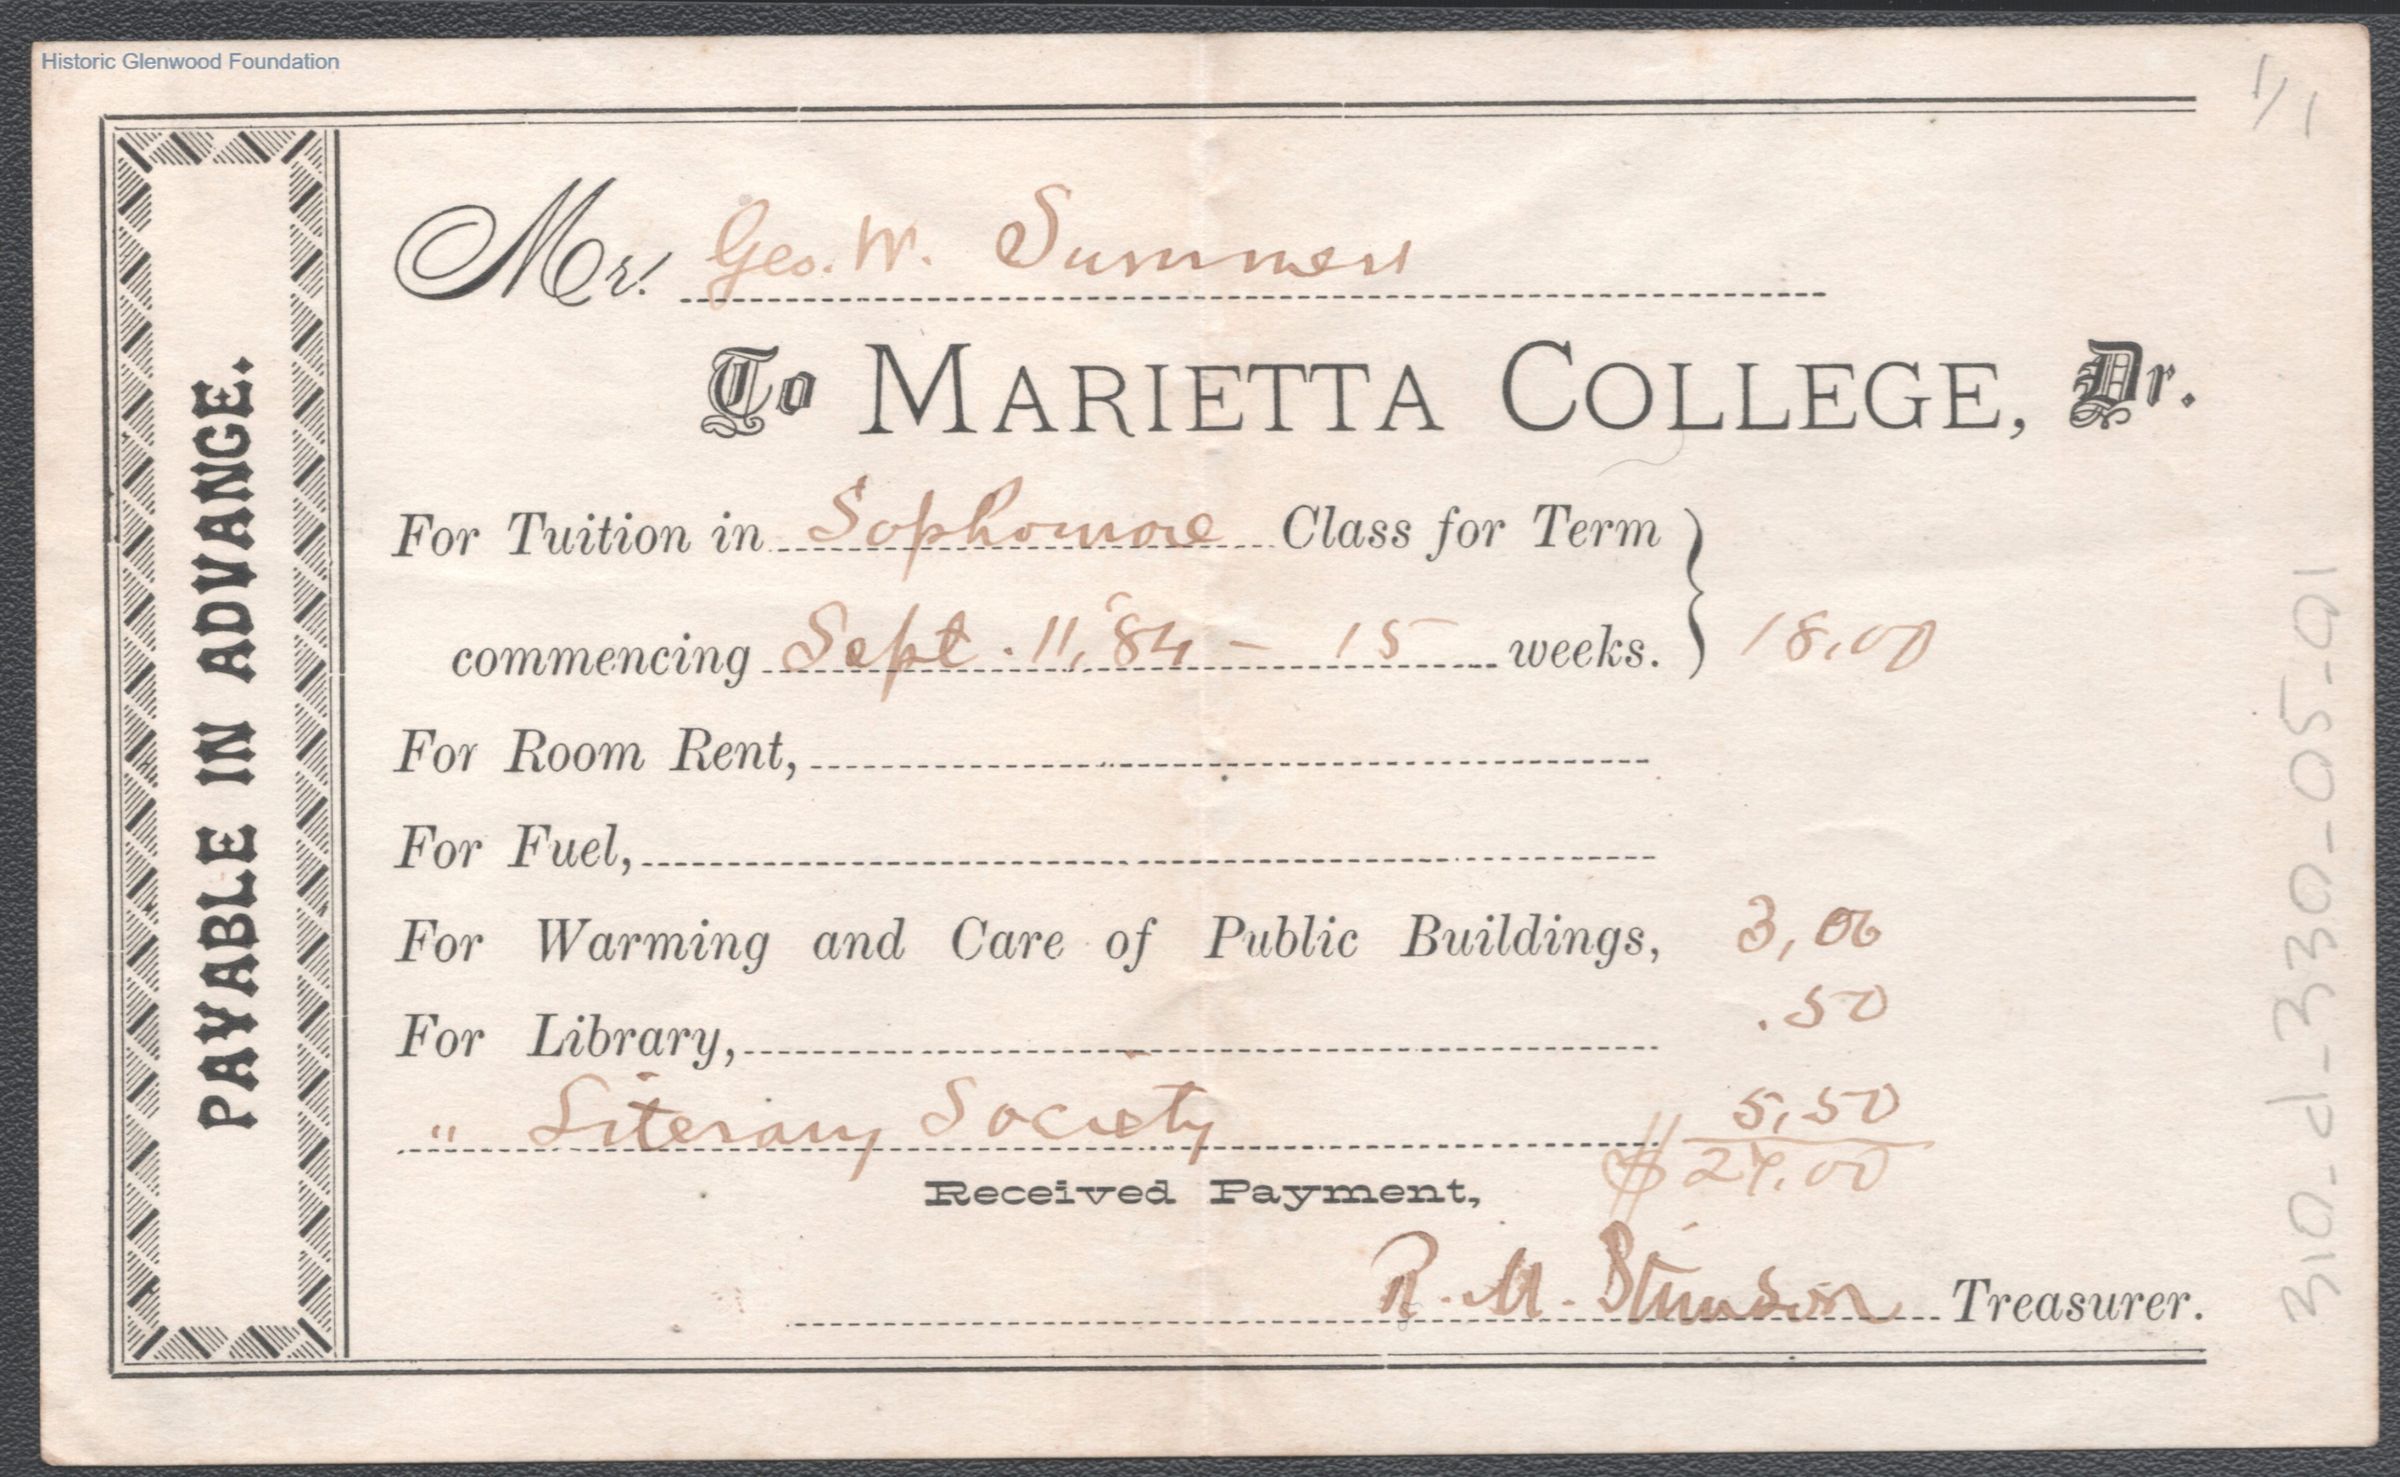 Historic Glenwood Foundation
1/1
PAYABLE IN ADVANCE.
Mr. Geo. W. Summers
To MARIETTA COLLEGE, Dr.
For Tuition in Sophomore Class for Term
commencing Sept. 11, '84 - 15 weeks. } 18.00
For Room Rent,
For Fuel,
For Warming and Care of Public Buildings, 3,00
For Library, .50
" Literary Society 5.50
Received Payment, $27.00
R. M. Stimson Treasurer.
310-d-330-05-01